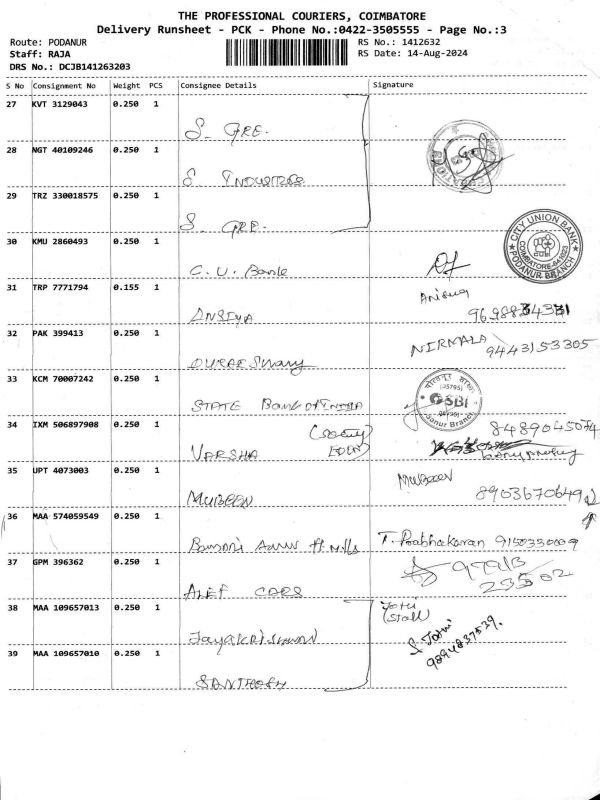 THE PROFESSIONAL COURIERS, COIMBATORE
Delivery Runsheet - PCK - Phone No.:0422-3505555 - Page No.:3
Route: PODANUR
Staff: RAJA
DRS No.: DCJB141263203
RS No.: 1412632
RS Date: 14-Aug-2024
S No Consignment No Weight PCS Consignee Details Signature
27 KVT 3129043 0.250 1
S_ GRE.
28 NGT 40109246 0.250 1
S Industries
29 TRZ 330018575 0.250 1
S_ GRE.
30 KMU 2860493 0.250 1
C. U. Bank
CITY UNION BANK
COIMBATORE-641023
PODANUR BRANCH
31 TRP 7771794 0.155 1
ANSIYA
32 PAK 399413 0.250 1
NIRMALA 9443153305
33 KCM 70007242 0.250 1
STATE Bank of INDIA
SBI
34 IXM 506897908 0.250 1
VARSHA
8489045074
35 UPT 4073003 0.250 1
MUBEEN
Mubeen
8903670649
36 MAA 574059549 0.250 1
T. Prabhakaran 9150330009
37 GPM 396362 0.250 1
ALEF CARS
97913
23502
38 MAA 109657013 0.250 1
Jayakrishnan
Jothi
(Stall)
39 MAA 109657010 0.250 1
SANTHOSH
S Jothi
9894837539.